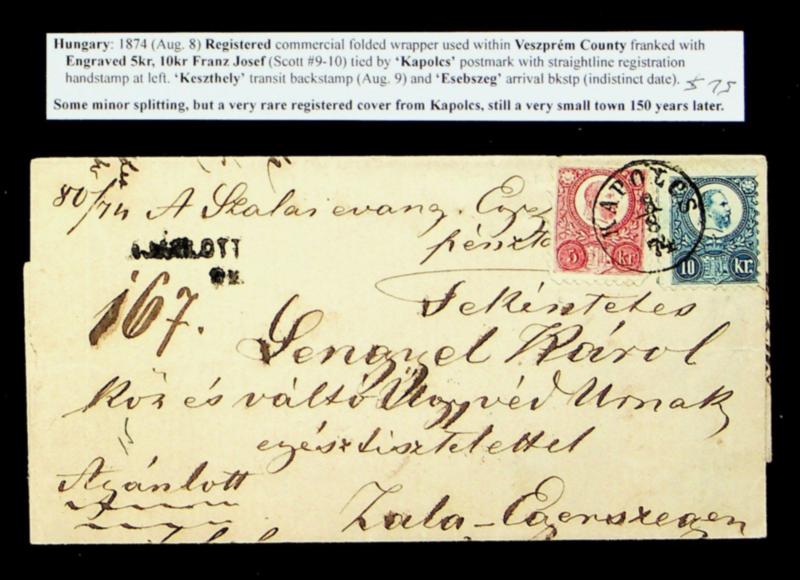 Hungary: 1874 (Aug. 8) Registered commercial folded wrapper used within Veszprém County franked with
Engraved 5kr, 10kr Franz Josef (Scott #9-10) tied by ‘Kapolcs’ postmark with straightline registration
handstamp at left. ‘Keszthely’ transit backstamp (Aug. 9) and ‘Esebszeg’ arrival bkstp (indistinct date). 575
Some minor splitting, but a very rare registered cover from Kapolcs, still a very small town 150 years later.
80/74 A Szalai evang.
KAPOLCS
5 kr.
10 kr.
167.
Tekintetes
Lengyel Károl
köz és váltó Ügyvéd Urnak
egész tisztelettel
Ajánlott
Zala-Egerszegen